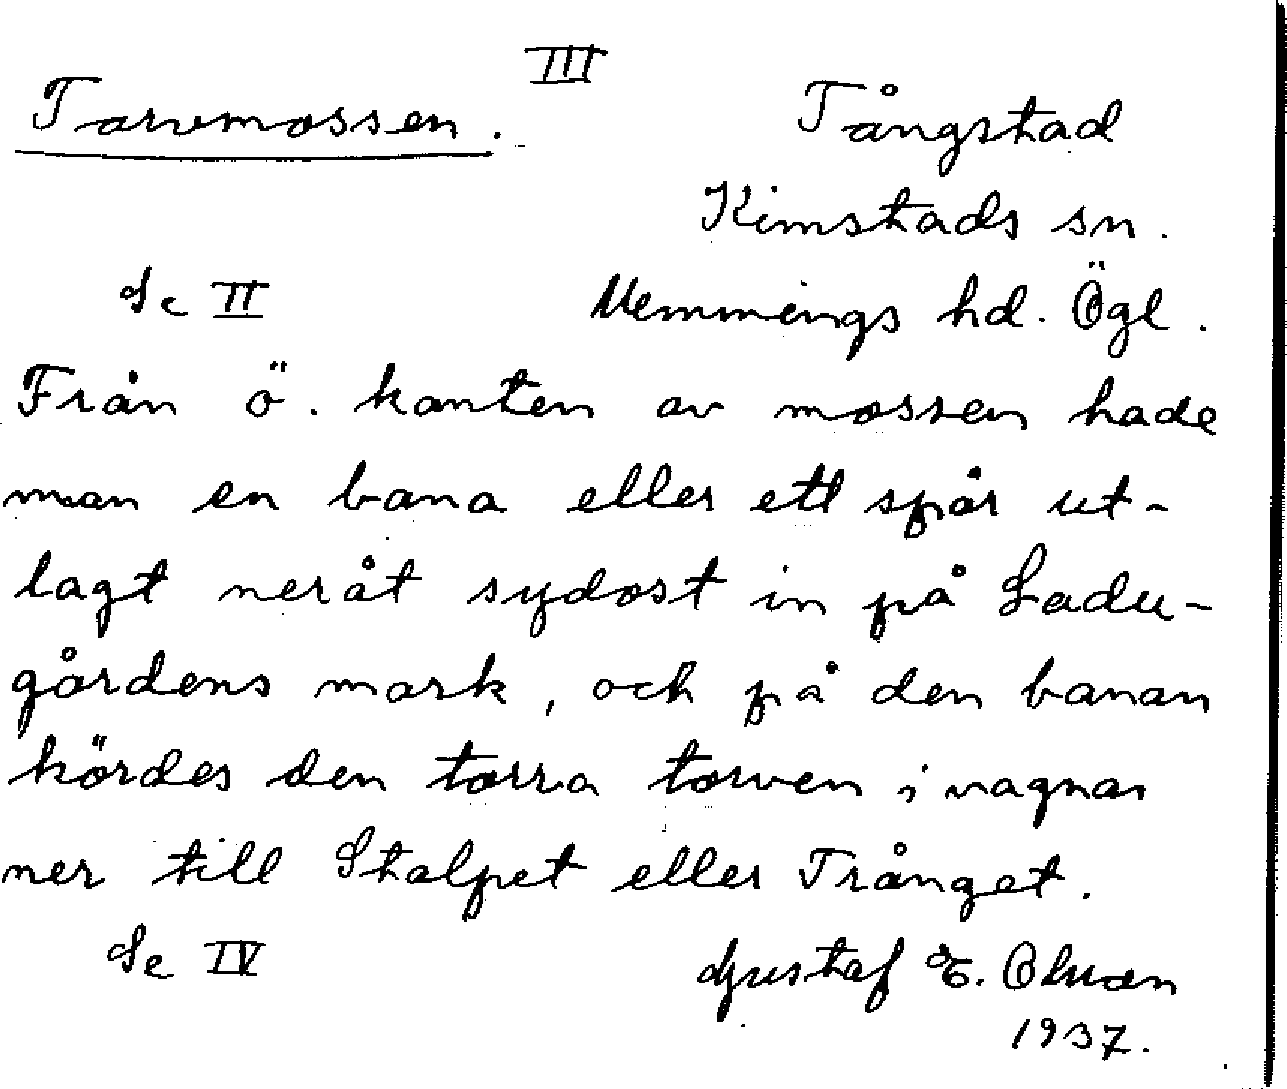 III
Torvmossen. Tångstad
Kimstads sn.
Se II Memmings hd. Ögl.
Från ö. kanten av mossen hade
man en bana eller ett spår ut-
lagt neråt sydost in på Ladu-
gårdens mark, och på den banan
kördes den torra torven i vagnar
ner till Stalpet eller Trånget.
Se IV Gustaf E. Olson
1937.